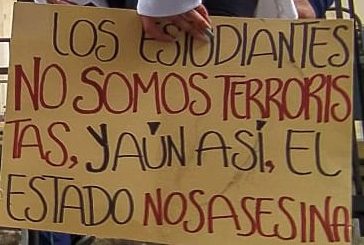 LOS ESTUDIANTES
NO SOMOS TERRORIS
TAS, Y AÚN ASÍ, EL
ESTADO NOS ASESINA